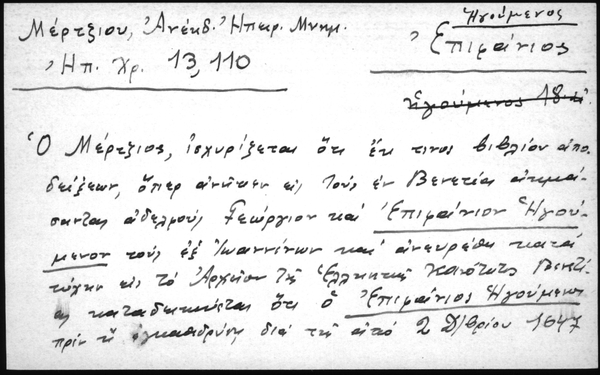 Μέρτζιου, Ἀνέκδ. Ἠπειρ. Μνημ.
Ἠπ. Χρ. 13, 110
Ἡγούμενος
Ἐπιφάνιος
Ἡγούμενος 18
Ὁ Μέρτζιος, ἰσχυρίζεται ὅτι ἔκ τινος βιβλίου ἀπο-
δείξεων, ὅπερ ἀνῆκεν εἰς τοὺς ἐν Βενετίᾳ ἀκμά-
σαντας ἀδελφούς Γεώργιον καί Ἐπιφάνιον Ἡγού-
μενον τούς ἐξ Ἰωαννίνων καί ἀνευρέθη κατά
τύχην εἰς τό Ἀρχεῖον τῆς Ἑλληνικῆς Κοινότητος Βενετί-
ας καταδεικνύεται ὅτι ὁ Ἐπιφάνιος Ἡγούμενος
πρίν ἤ διά τῆς ἀπό 2 Δ/βρίου 1647